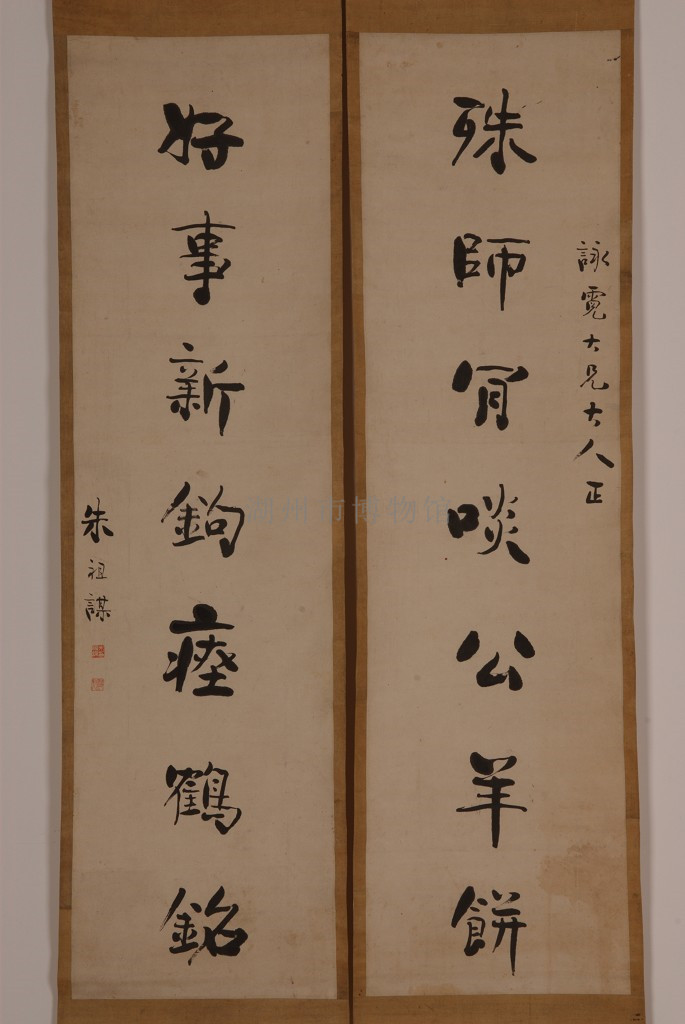 詠霓大兄大人正
殊師肎啖公羊餅
好事新鉤瘞鶴銘
朱祖謀
湖州市博物馆